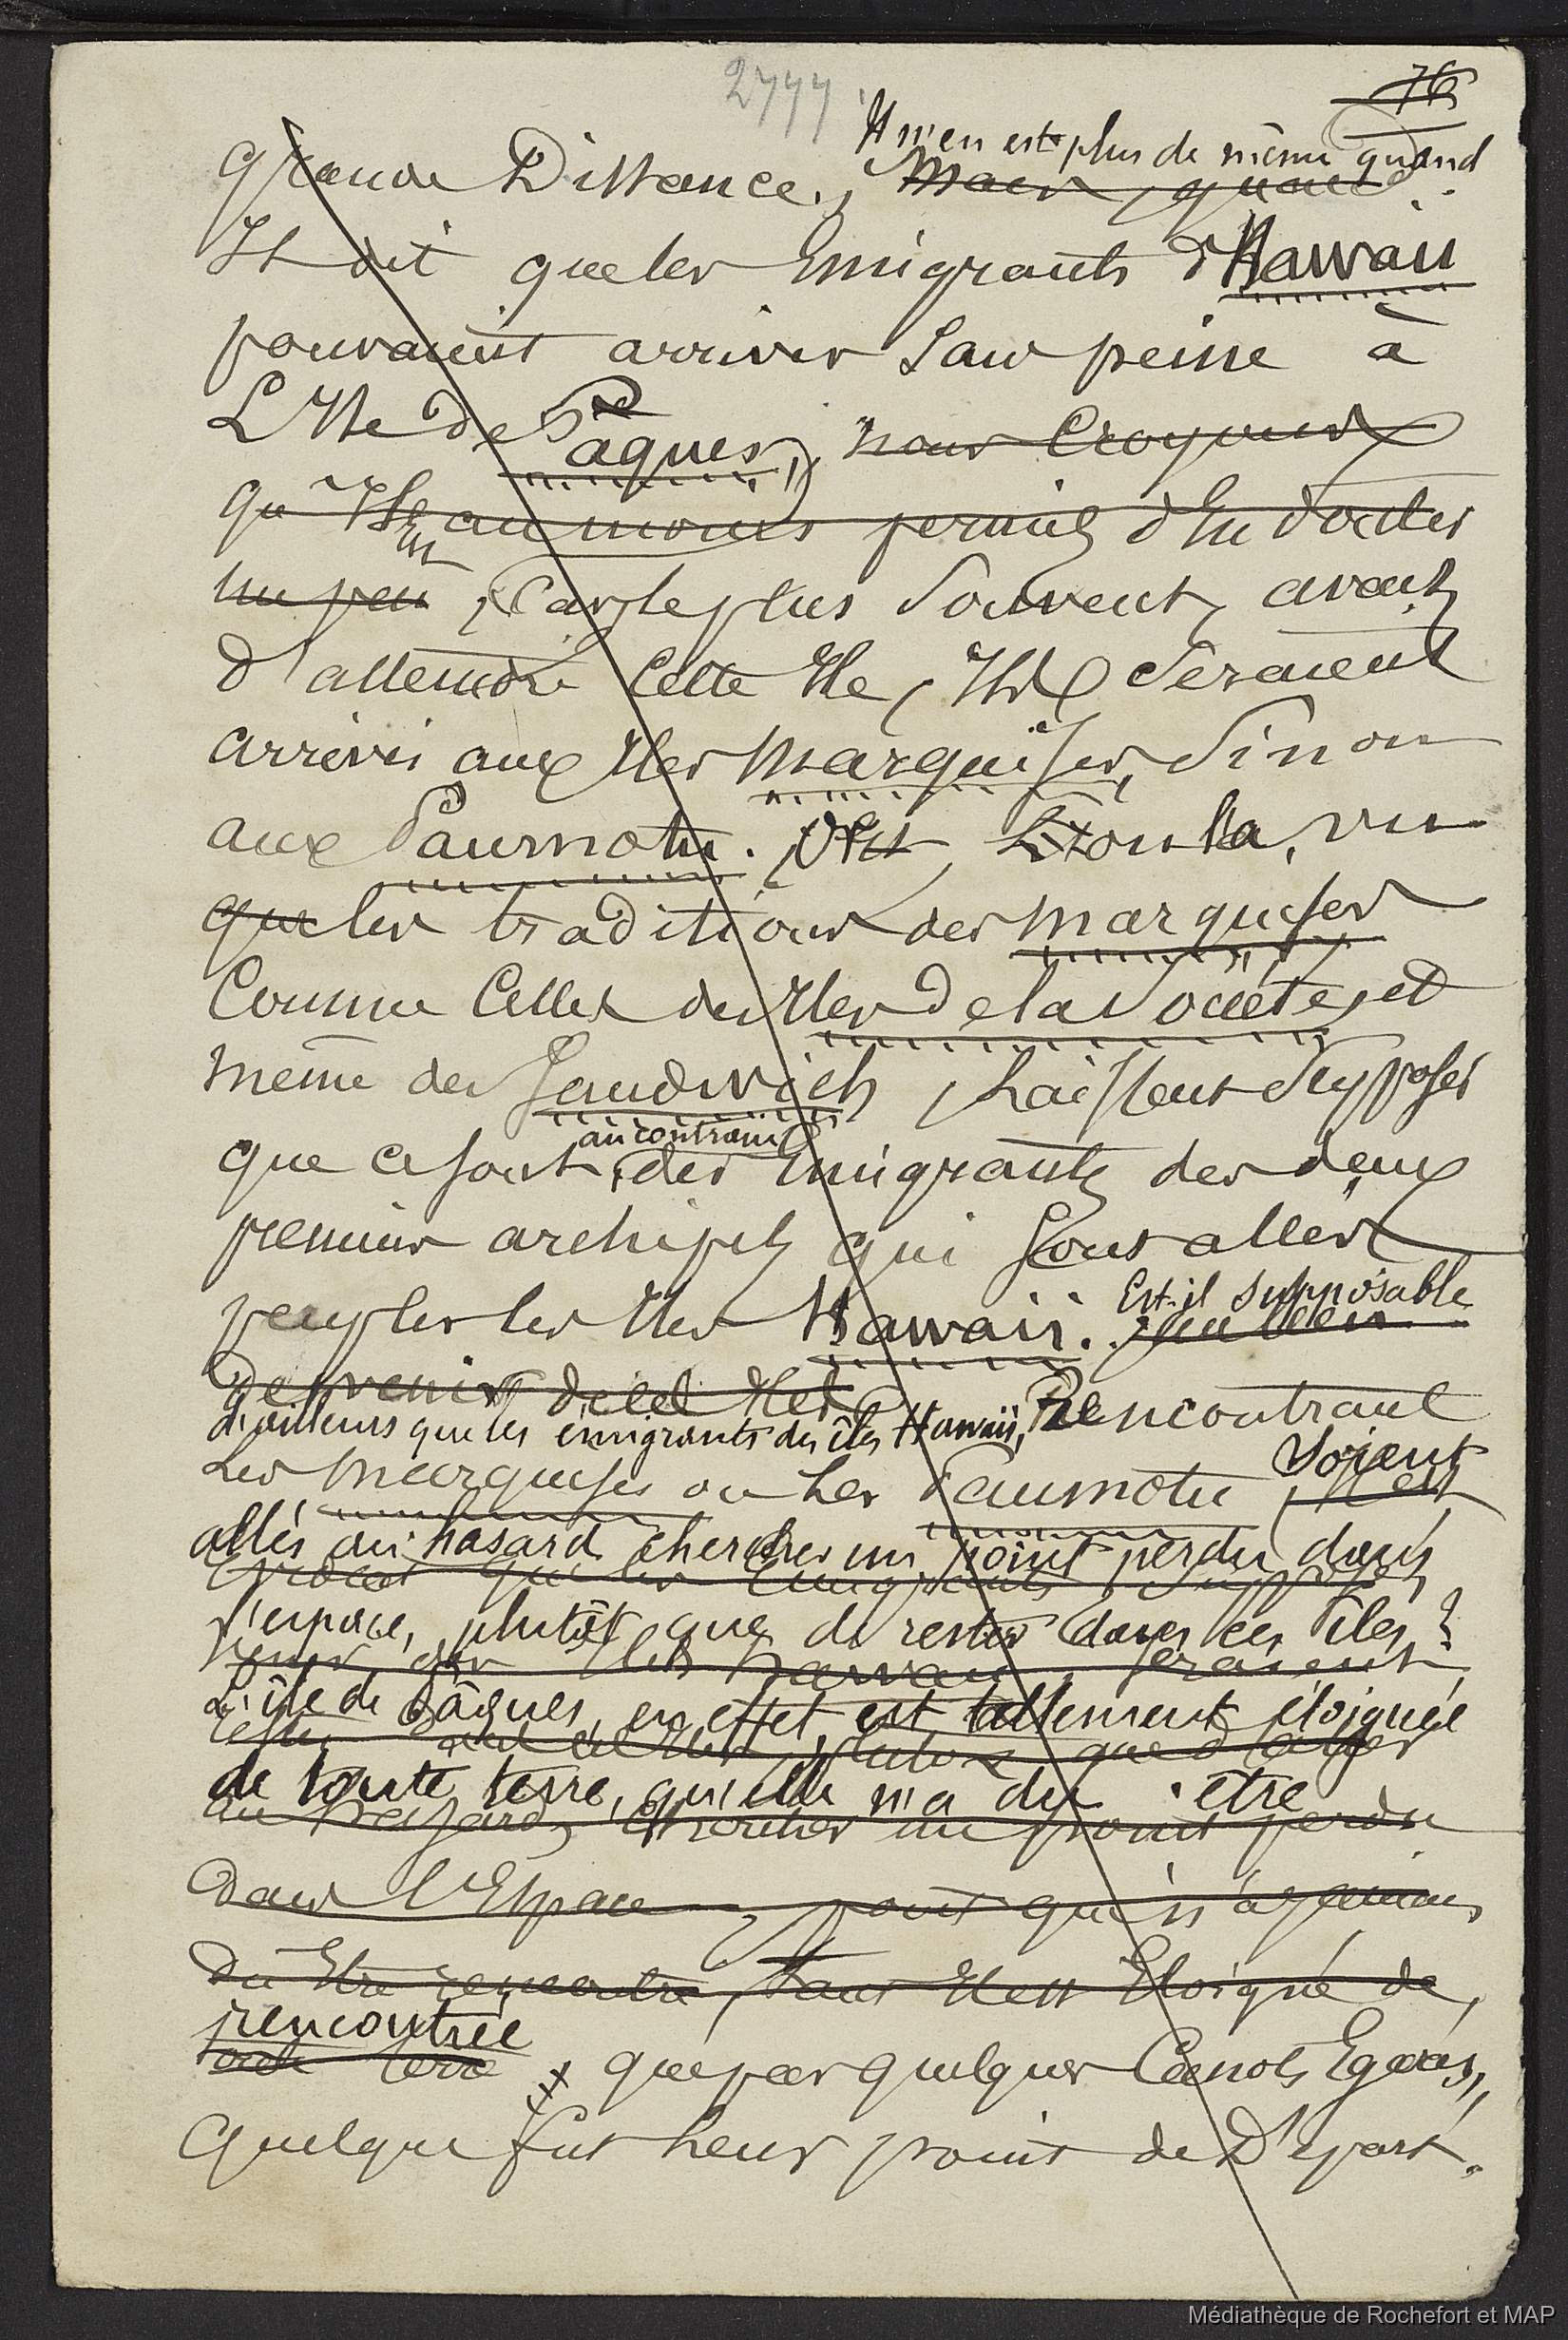 2777
76
Il n'en est plus de même quand
grande Distance., Mais, quand
Il dit que les Emigrants d'Hawaii
pouvaient arriver sans peine à
L'Ile de Pâques, nous Croyons
qu'Il est au moins permis d'En douter
un peu, Car le plus souvent, avant
d'atteindre Cette Ile, Ils seraient
arrivés aux Iles Marquises, Sinon
aux Paumotu. Et voilà, vu
que les traditions des Marquises
Comme Celles des Iles de la Société, et
même des Sandwich, Laissent Supposer
au contraire
que ce sont des Emigrants des deux
premiers archipels qui sont allés
Est-il supposable
peupler les Iles Hawaii.
de ces Iles
d'ailleurs que les émigrants des îles Hawaii, Rencontrant
soient
Les Marquises ou Les Paumotu
allés au hasard chercher un point perdu dans
que les Emigrants supposés
l'espace, plutôt que de rester dans ces îles?
venir des Iles Hawaii seraient
L'île de Pâques, en effet, est tellement éloignée
plutôt que d'aller
de toute terre, qu'elle n'a du être
au hasard, Chercher un point perdu
dans l'Espace, point qui n'a jamais
du Etre rencontré, tant Il est Eloigné de
rencontrée
toute terre que par quelques Canots Egarés,
quelque fut leur point de Départ.
Médiathèque de Rochefort et MAP